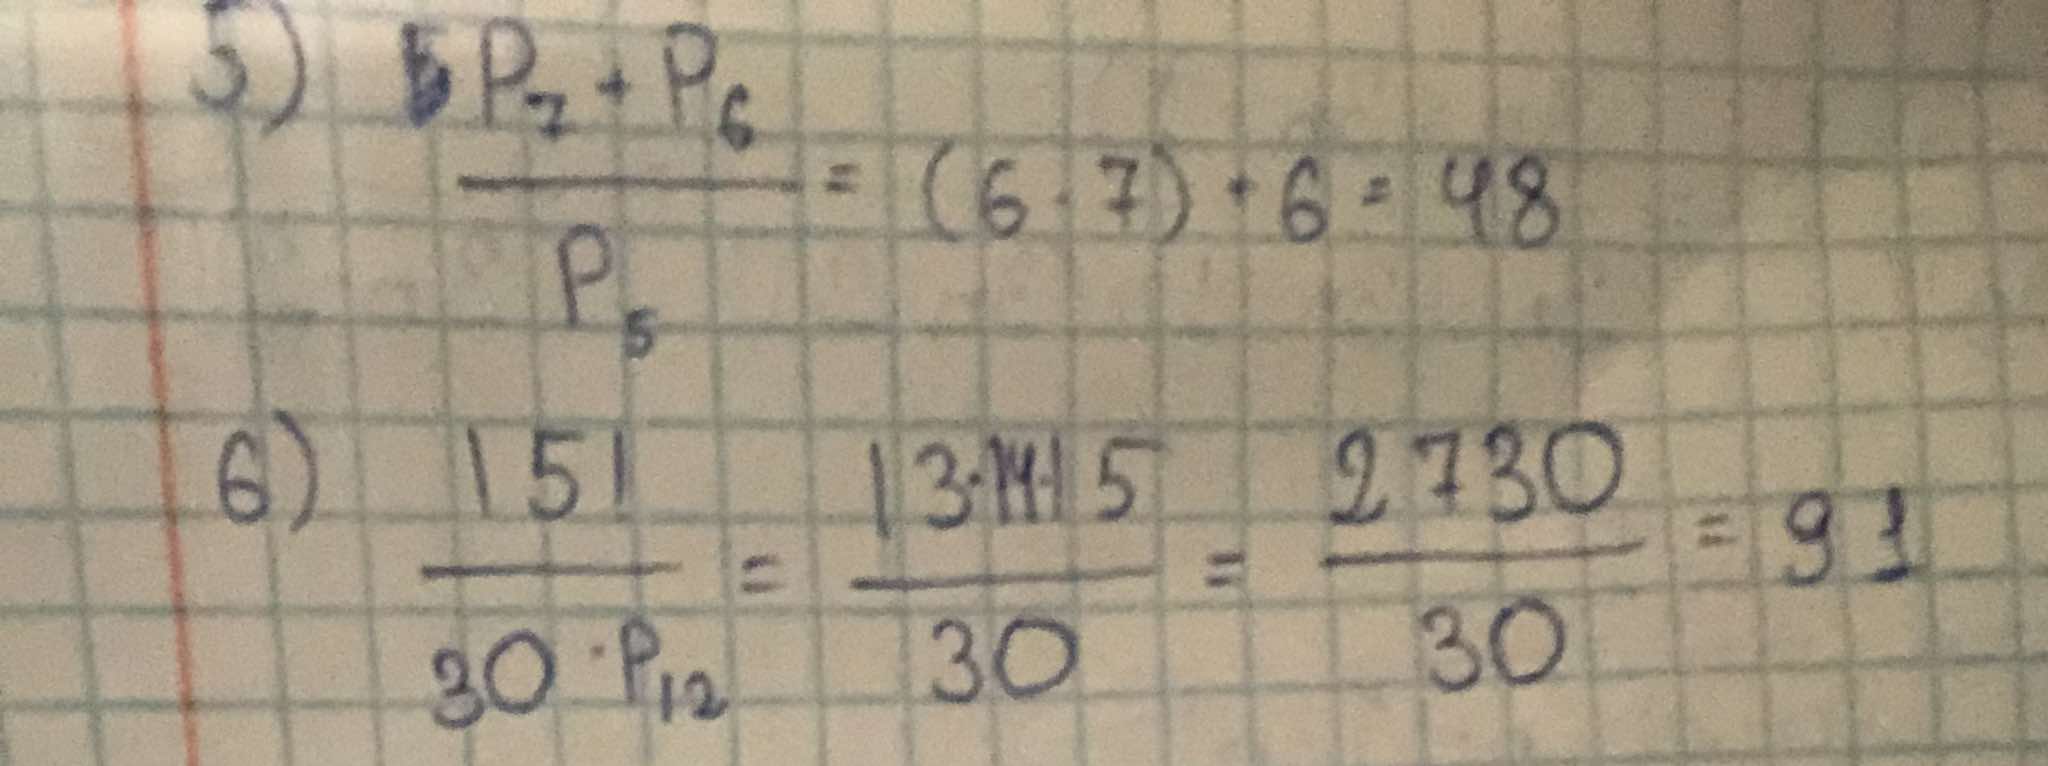 5) P₇ + P₆ / P₅ = (6 · 7) + 6 = 48
6) 15! / 30 · P₁₂ = 13·14·15 / 30 = 2730 / 30 = 91